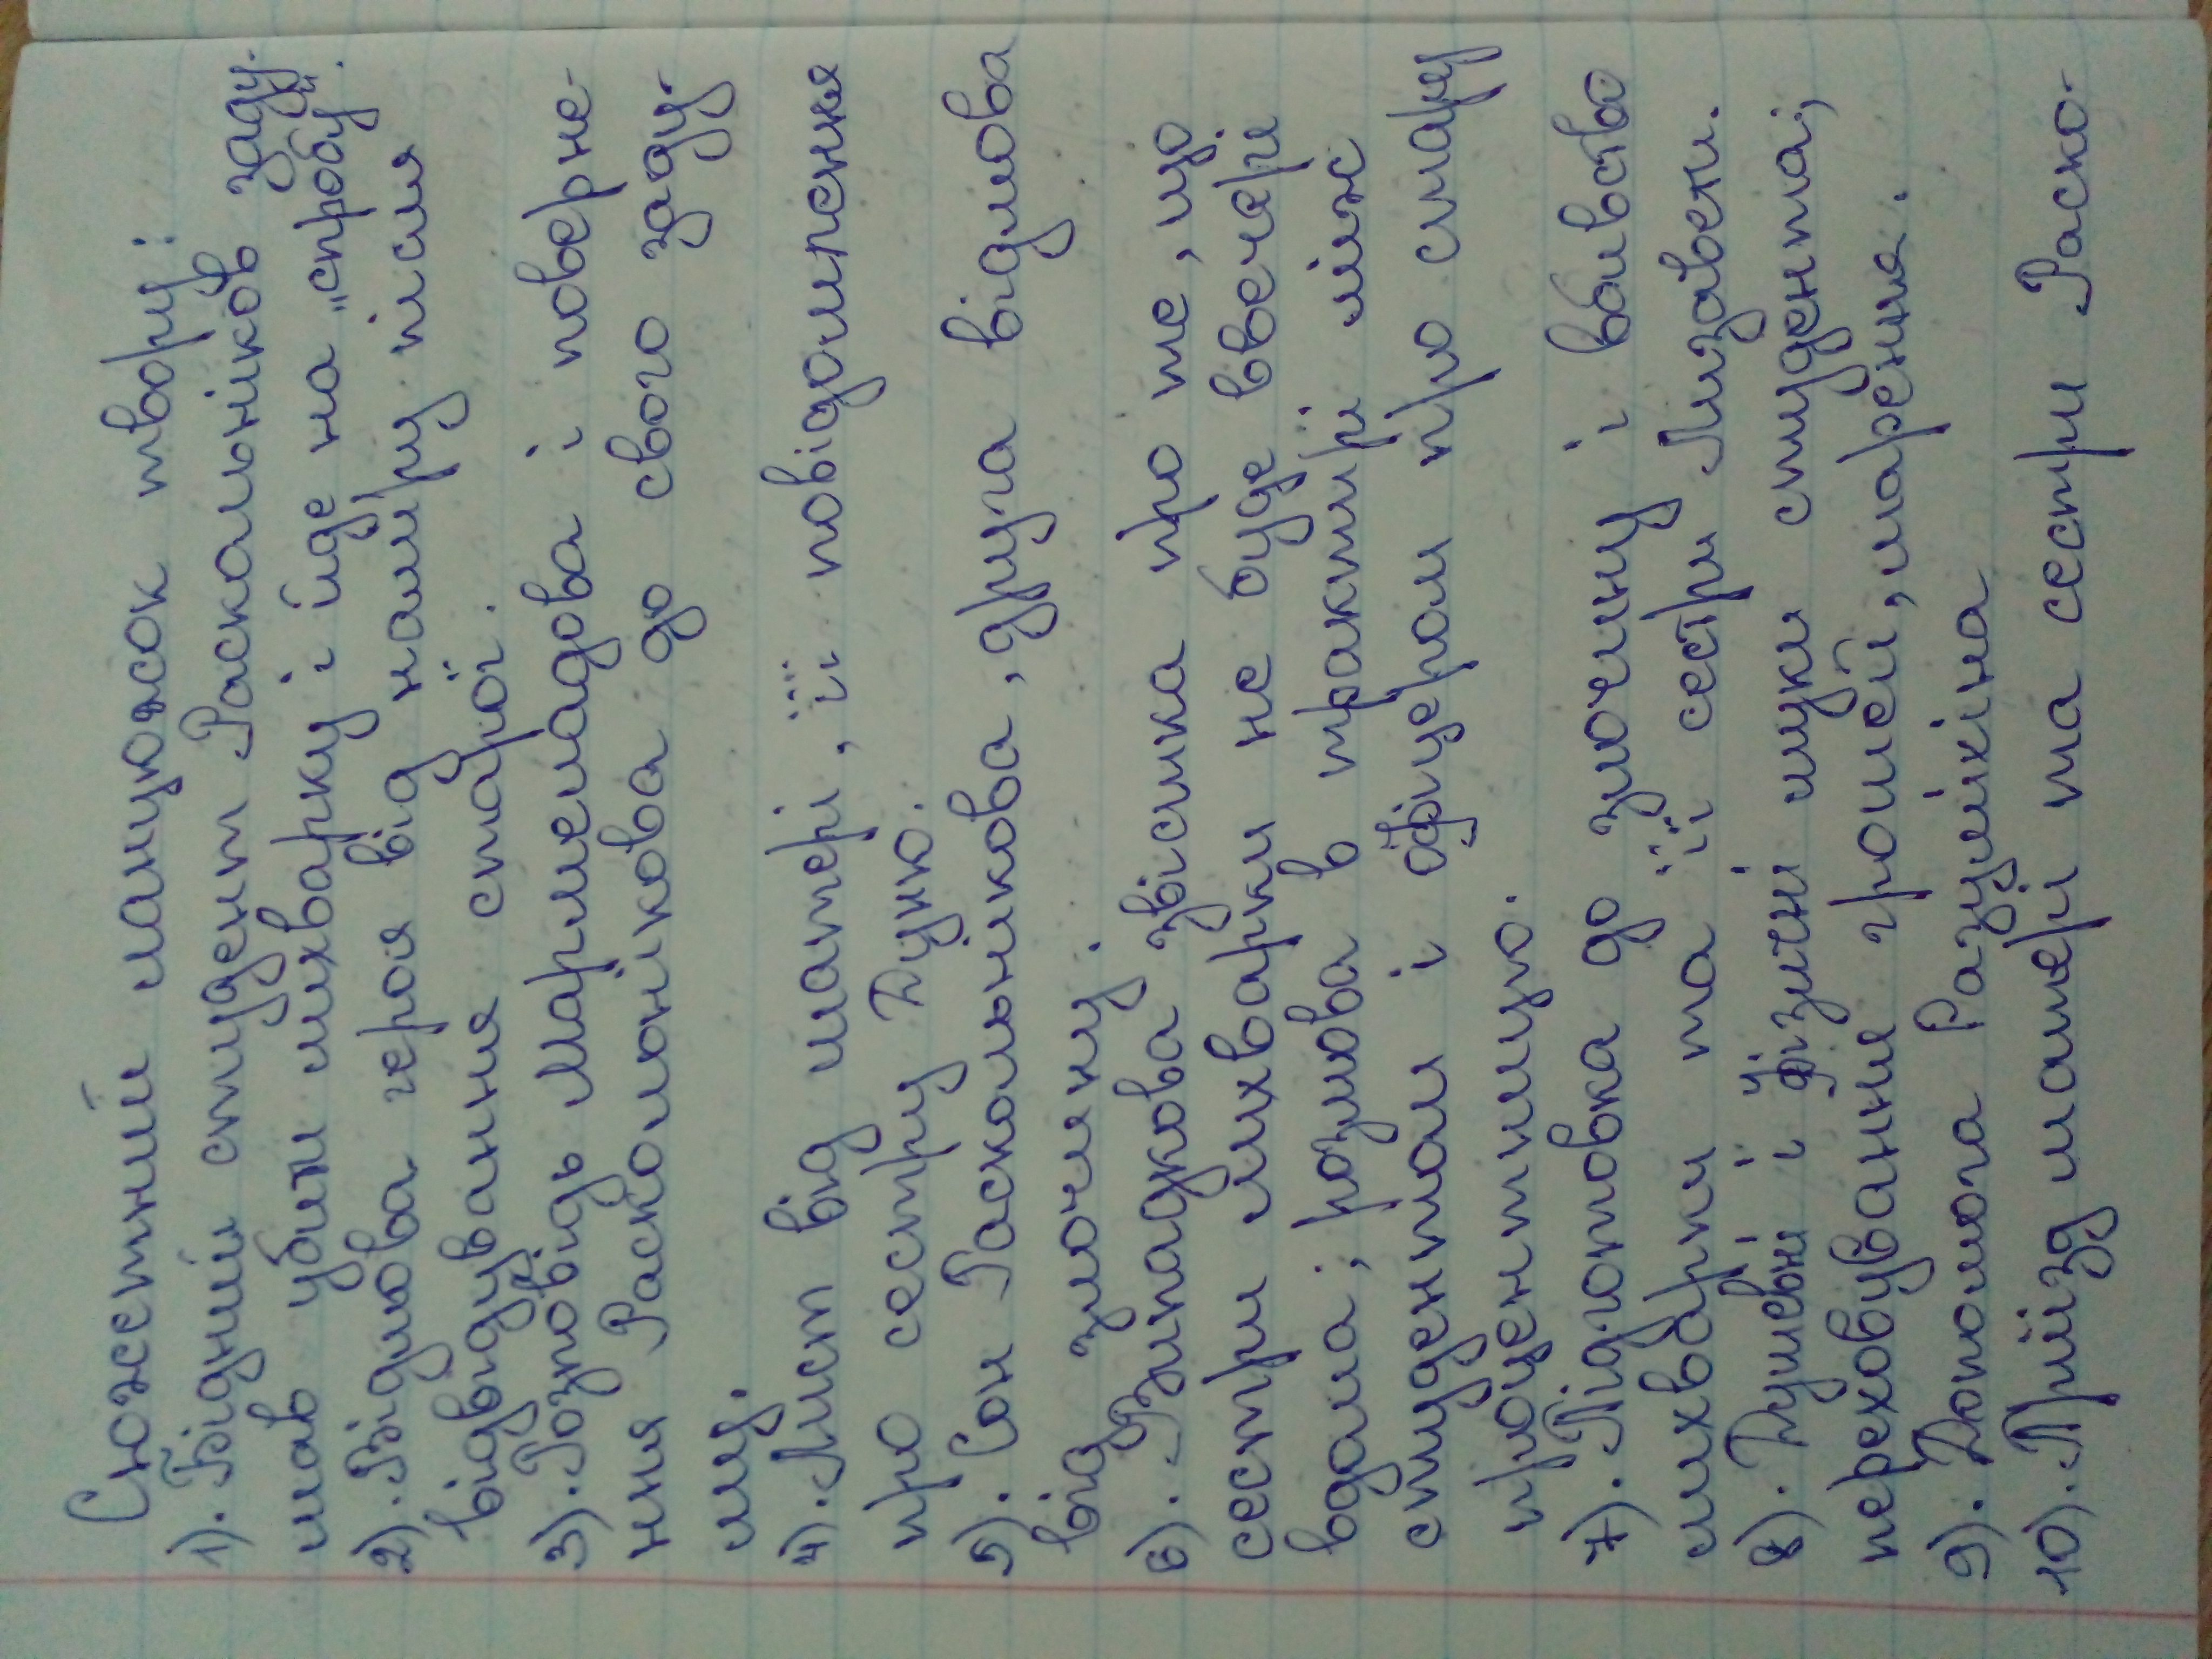 Сюжетний ланцюжок твору:
1). Бідний студент Раскольніков заду-
мав убити лихварку і йде на „спробу".
2). Відмова героя від наміру після
відвідування старої.
3). Розповідь Мармеладова і поверне-
ння Раскольнікова до свого заду-
му.
4). Лист від матері, її повідомлення
про сестру Дуню.
5). Сон Раскольникова, друга відмова
від злочину.
6). Випадкова звістка про те, що
сестри лихварки не буде ввечері
вдома; розмова в трактирі між
студентом і офіцером про стару
процентницю.
7). Підготовка до злочину і вбивство
лихварки та її сестри Лизавети.
8). Душевні і фізичні муки студента;
переховування грошей, марення.
9). Допомога Разуміхіна
10). Приїзд матері та сестри Раско-